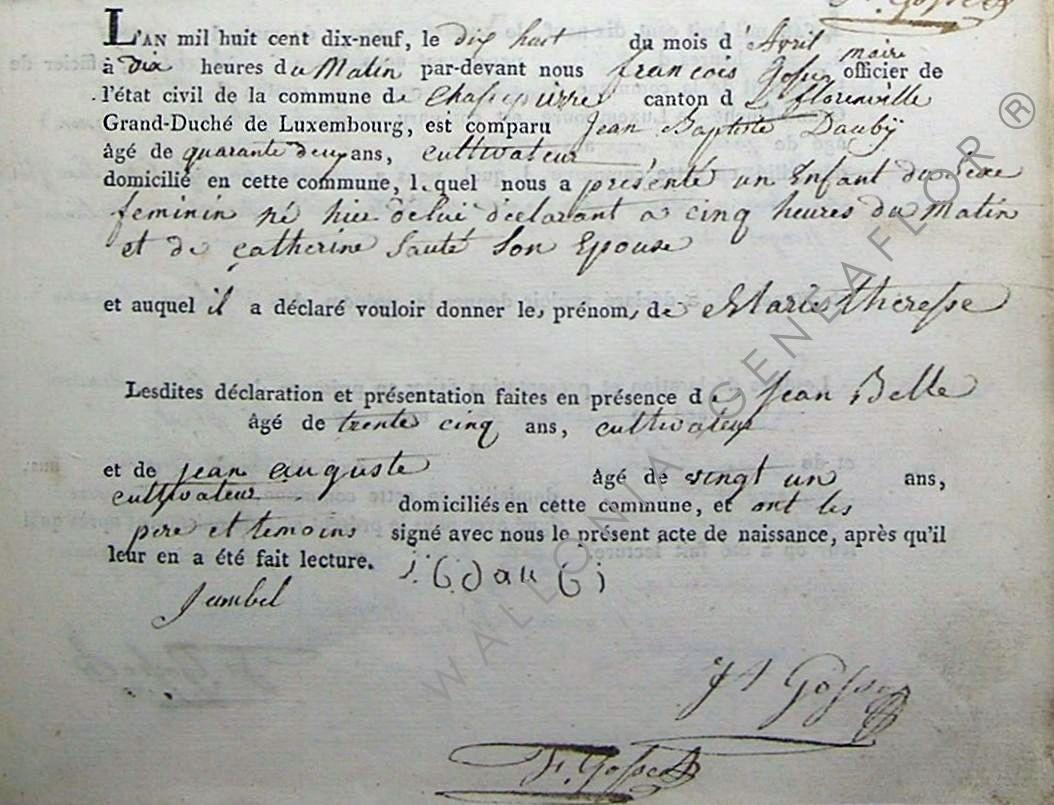 F. Gosse
L'AN mil huit cent dix-neuf, le dix huit du mois d'Avril
à dix heures du Matin par-devant nous françois Gosse maire officier de
l'état civil de la commune de Chassepierre canton d florenville
Grand-Duché de Luxembourg, est comparu Jean Baptiste Daubÿ
âgé de quarante deux ans, cultivateur
domicilié en cette commune, lequel nous a présenté un Enfant du Sexe
feminin né hier de lui déclarant a cinq heures du Matin
et de Catherine Sauté Son Epouse
et auquel il a déclaré vouloir donner les prénoms de Marie theresse
Lesdites déclaration et présentation faites en présence de Jean Belle
âgé de trente cinq ans, cultivateur
et de jean auguste âgé de vingt un ans,
cultivateur domiciliés en cette commune, et ont les
pere et temoins signé avec nous le présent acte de naissance, après qu'il
leur en a été fait lecture. j. b dau bi
Jambel
J A Gosse
F. Gosse
WALLONIA GENEAFLOR ®